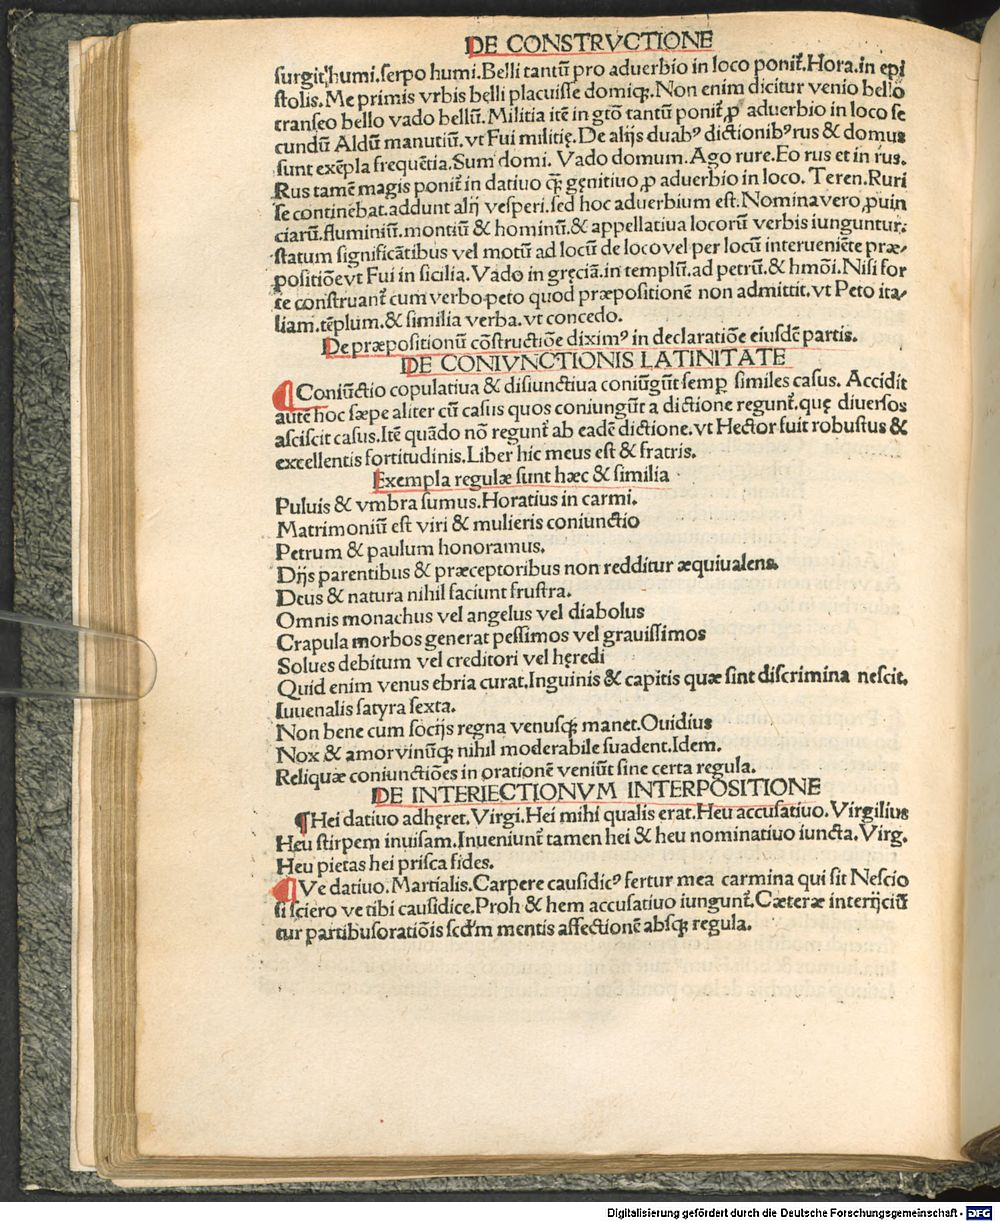 DE CONSTRVCTIONE
ſurgit,humi.ſerpo humi.Belli tantū pro aduerbio in loco ponit̄.Hora.in epi
ſtolis.Me primis vrbis belli placuiſſe domiqꝫ.Non enim dicitur venio bello
tranſeo bello vado bellū.Militia itē in gtō tantū ponit̄ ꝓ aduerbio in loco ſe
cundū Aldū manutiū.vt Fui militię.De alijs duabꝰ dictionibꝰ rus & domus
ſunt exēpla frequētia.Sum domi. Vado domum.Ago rure.Eo rus et in rus.
Rus tamē magis ponit̄ in datiuo qꝫ̄ gęnitiuo ꝓ aduerbio in loco. Teren.Ruri
ſe continebat.addunt alij veſperi.ſed hoc aduerbium eſt.Nomina vero ꝓuin
ciarū.fluminiū.montiū & hominū.& appellatiua locorū verbis iunguntur:
ſtatum ſignificātibus vel motū ad locū de loco vel per locū interueniēte præ-
poſitiōe vt Fui in ſicilia.Vado in gręciā.in templū.ad petrū.& hmōi.Niſi for
te conſtruant̄ cum verbo peto quod præpoſitionē non admittit.vt Peto ita-
liam.tēplum.& ſimilia verba.vt concedo.
De præpoſitionū cōſtructiōe diximꝰ in declaratiōe eiuſdē partis.
DE CONIVNCTIONIS LATINITATE
Coniūctio copulatiua & diſiunctiua coniūgūt ſemꝑ ſimiles caſus. Accidit
autē hoc ſæpe aliter cū caſus quos coniungūt a dictione regunt̄.quę diuerſos
aſciſcit caſus.Itē quādo nō regunt̄ ab eadē dictione.vt Hector fuit robuſtus &
excellentis fortitudinis.Liber hic meus eſt & fratris.
Exempla regulæ ſunt hæc & ſimilia
Puluis & vmbra ſumus.Horatius in carmi.
Matrimoniū eſt viri & mulieris coniunctio
Petrum & paulum honoramus.
Dijs parentibus & præceptoribus non redditur æquiualens.
Deus & natura nihil faciunt fruſtra.
Omnis monachus vel angelus vel diabolus
Crapula morbos generat peſſimos vel grauiſſimos
Solues debitum vel creditori vel hęredi
Quid enim venus ebria curat.Inguinis & capitis quæ ſint diſcrimina neſcit.
Iuuenalis ſatyra ſexta.
Non bene cum ſocijs regna venuſqꝫ manet.Ouidius
Nox & amor vinūqꝫ nihil moderabile ſuadent.Idem.
Reliquæ coniunctiōes in orationē veniūt ſine certa regula.
DE INTERIECTIONVM INTERPOSITIONE
¶ Hei datiuo adhęret.Virgi.Hei mihi qualis erat.Heu accuſatiuo.Virgilius
Heu ſtirpem inuiſam.Inueniunt̄ tamen hei & heu nominatiuo iuncta.Virg.
Heu pietas hei priſca fides.
Ve datiuo.Martialis.Carpere cauſidicꝰ fertur mea carmina qui ſit Neſcio
ſi ſciero ve tibi cauſidice.Proh & hem accuſatiuo iungunt̄.Cæteræ interijciū
tur partibus oratiōis ſcd'm mentis affectionē abſqꝫ regula.
Digitalisierung gefördert durch die Deutsche Forschungsgemeinschaft - DFG